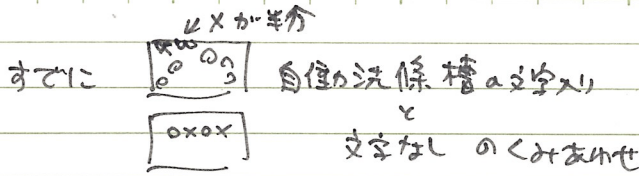 ↙ ×が半分
すでに 自働洗滌槽の文字入り
と
○×○× 文字なし のくみあわせ